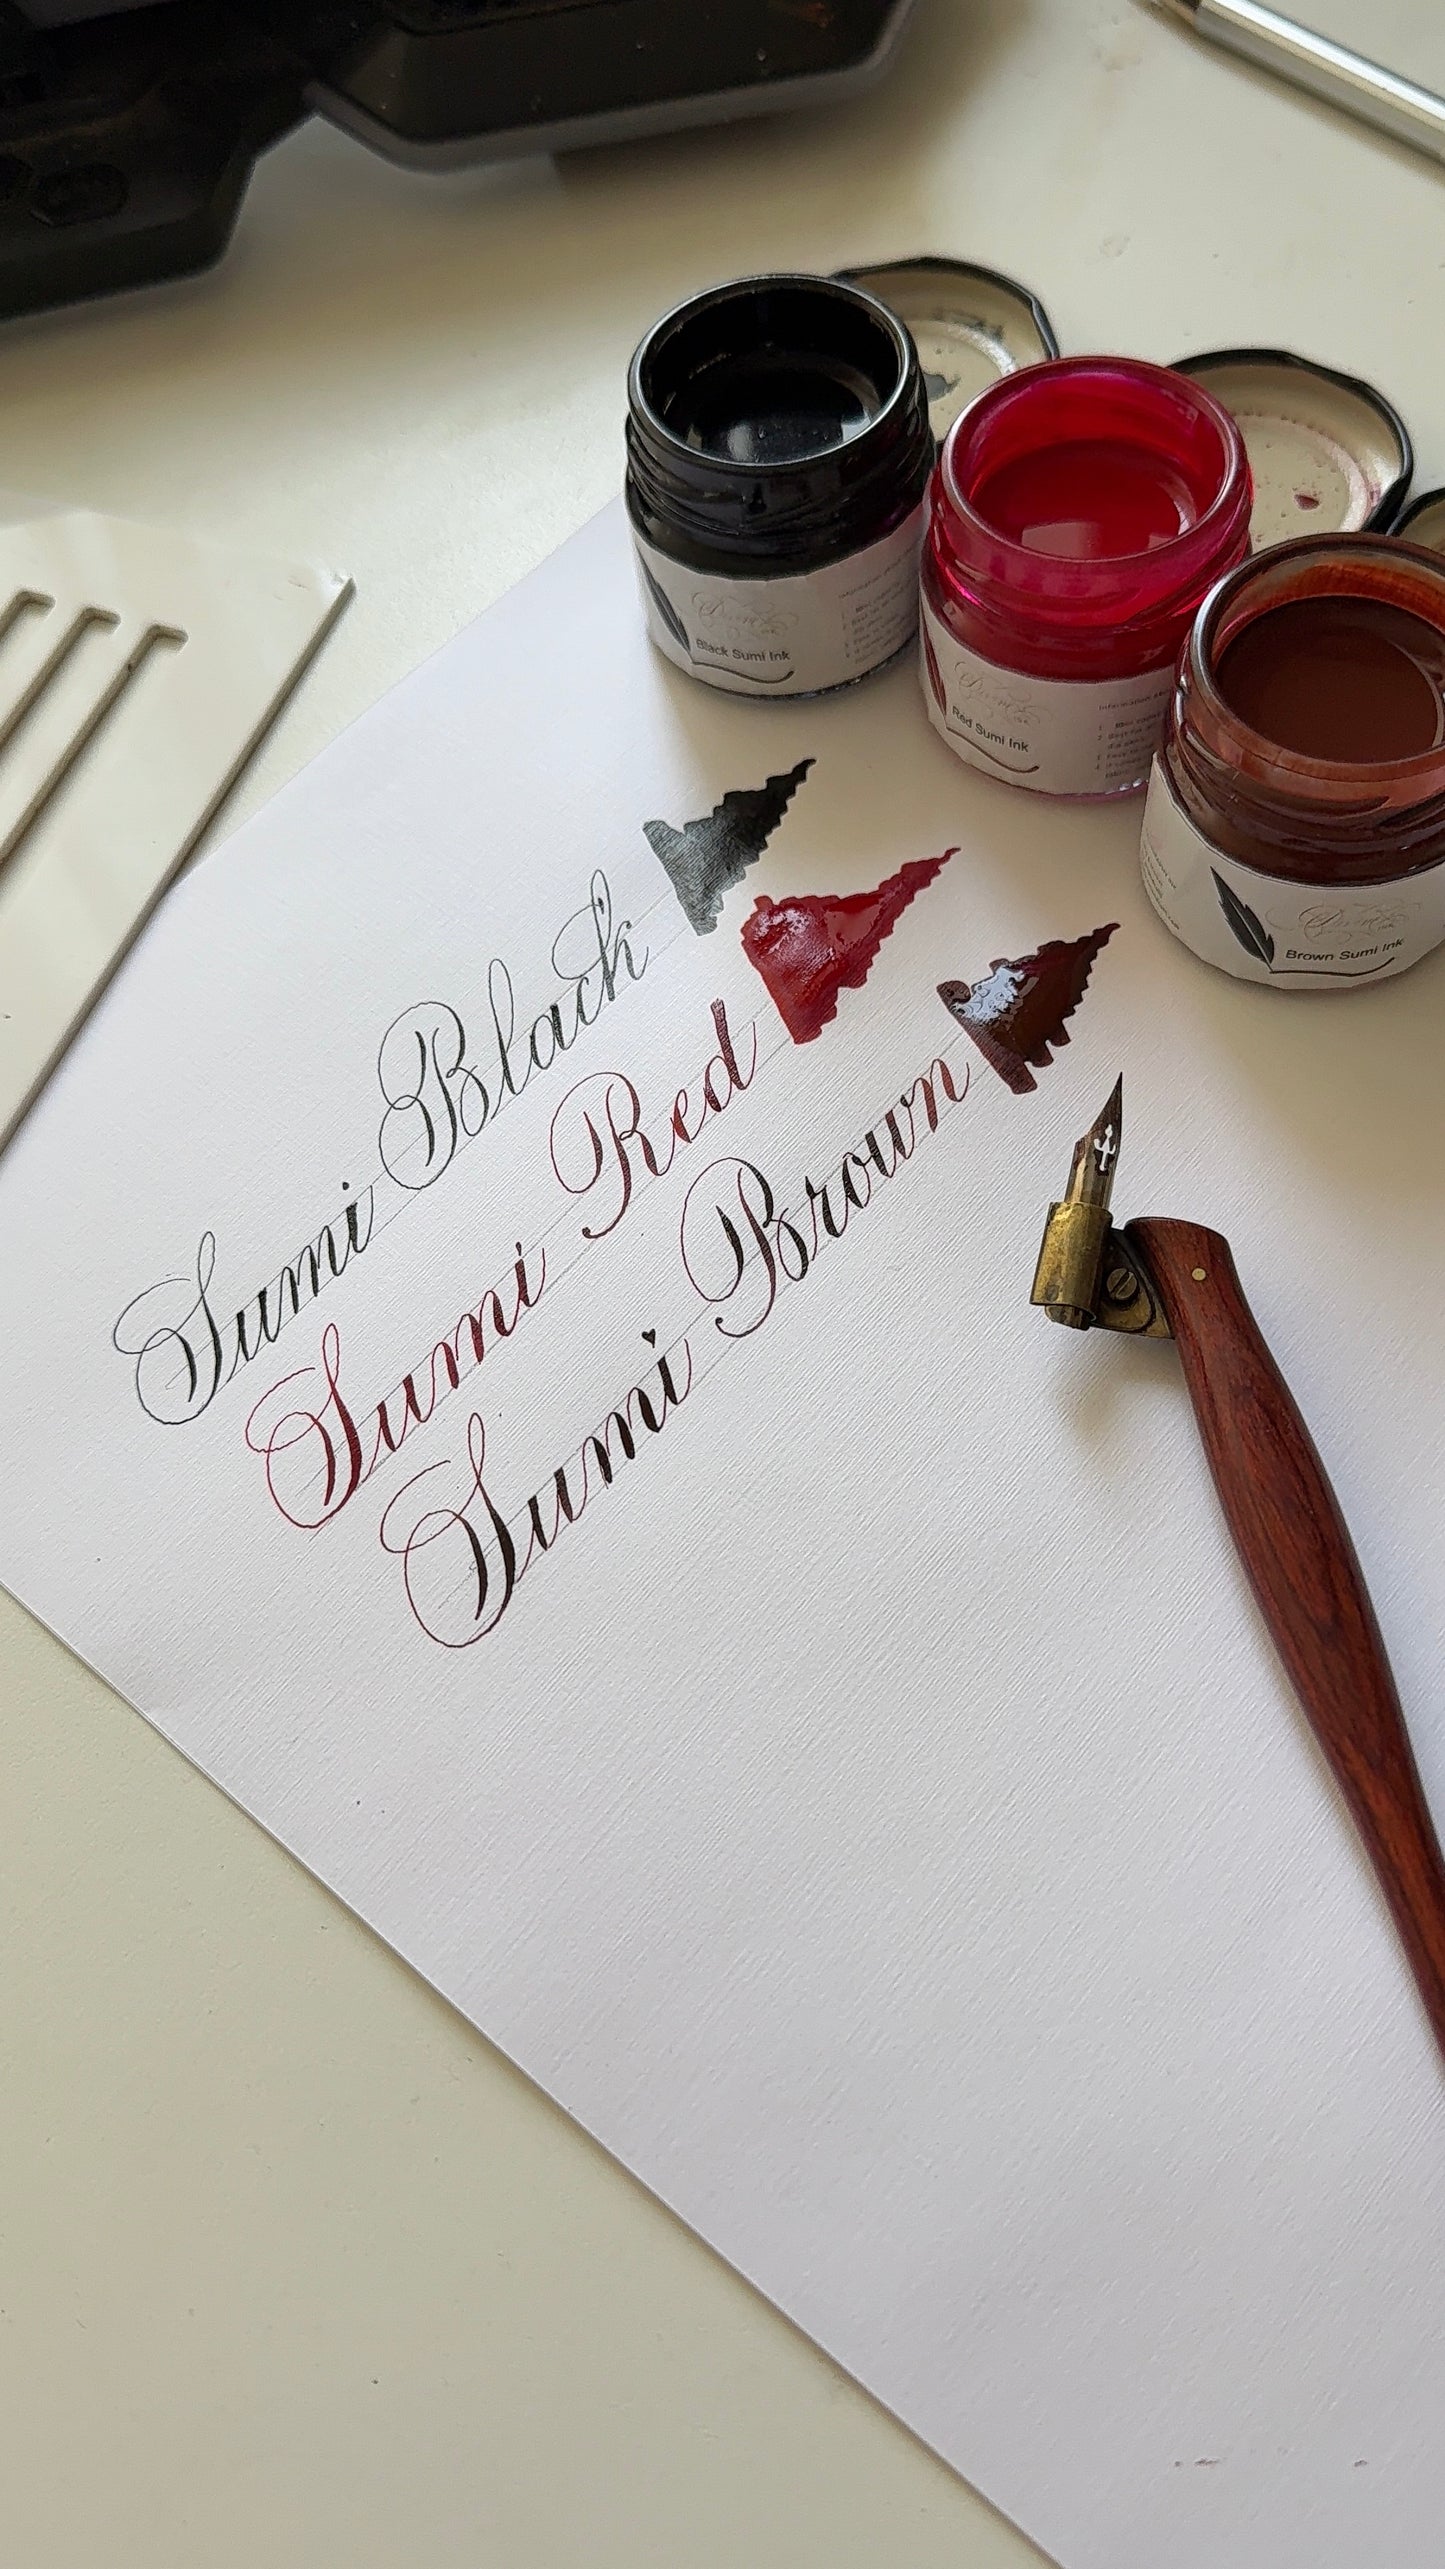 Sumi Black
Sumi Red
Sumi Brown
Black Sumi Ink
Red Sumi Ink
Brown Sumi Ink